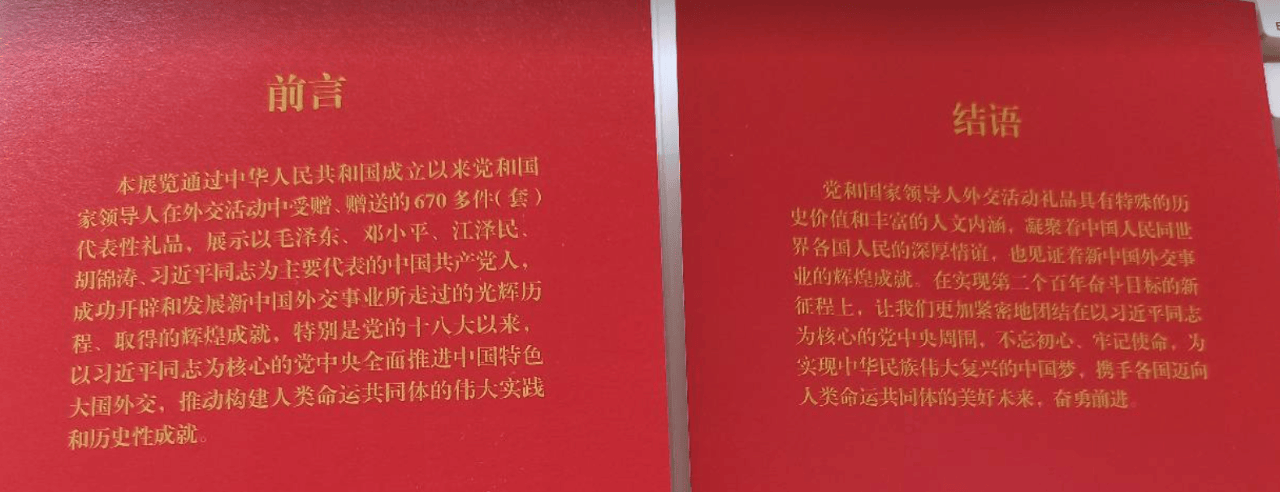 前言
本展览通过中华人民共和国成立以来党和国
家领导人在外交活动中受赠、赠送的670多件（套）
代表性礼品，展示以毛泽东、邓小平、江泽民、
胡锦涛、习近平同志为主要代表的中国共产党人，
成功开辟和发展新中国外交事业所走过的光辉历
程、取得的辉煌成就，特别是党的十八大以来，
以习近平同志为核心的党中央全面推进中国特色
大国外交，推动构建人类命运共同体的伟大实践
和历史性成就。
结语
党和国家领导人外交活动礼品具有特殊的历
史价值和丰富的人文内涵，凝聚着中国人民同世
界各国人民的深厚情谊，也见证着新中国外交事
业的辉煌成就。在实现第二个百年奋斗目标的新
征程上，让我们更加紧密地团结在以习近平同志
为核心的党中央周围，不忘初心、牢记使命，为
实现中华民族伟大复兴的中国梦，携手各国迈向
人类命运共同体的美好未来，奋勇前进。